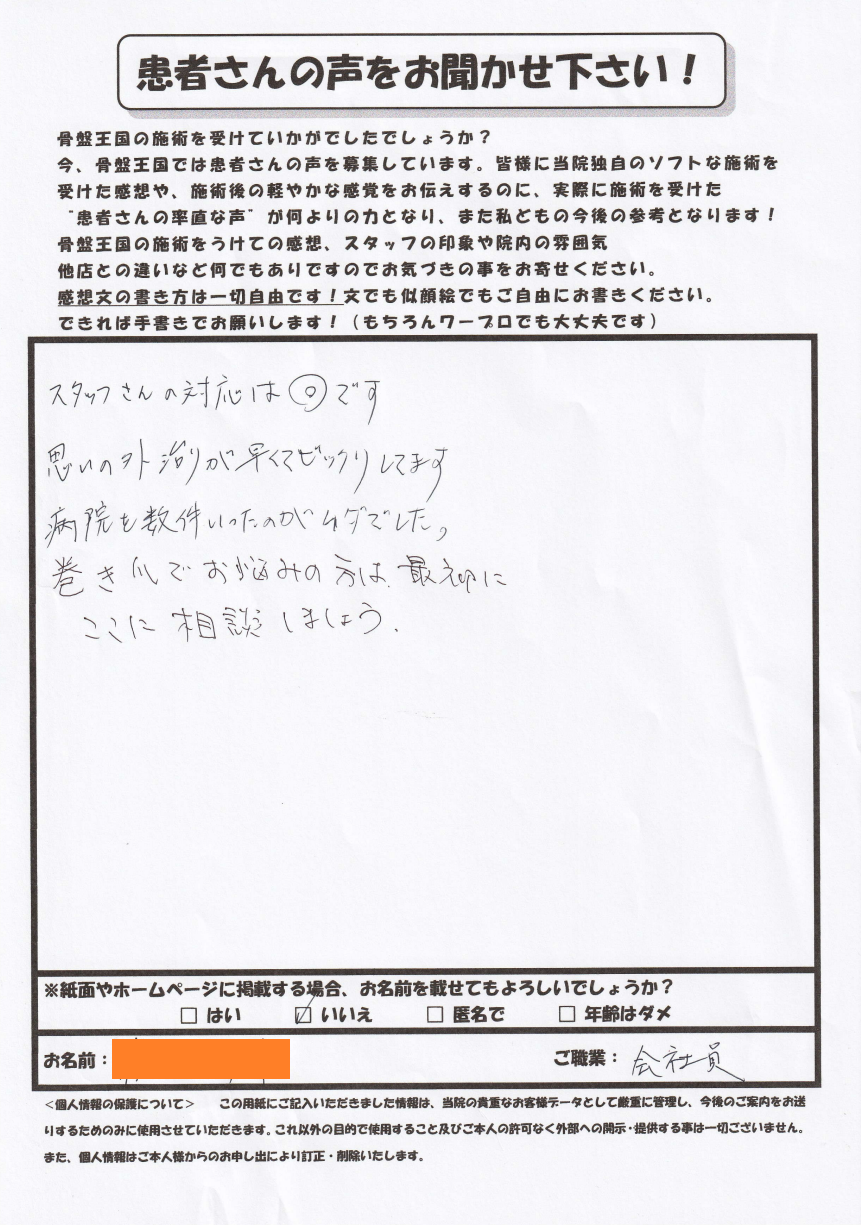 患者さんの声をお聞かせ下さい！
骨盤王国の施術を受けていかがでしたでしょうか？
今、骨盤王国では患者さんの声を募集しています。皆様に当院独自のソフトな施術を
受けた感想や、施術後の軽やかな感覚をお伝えするのに、実際に施術を受けた
"患者さんの率直な声"が何よりの力となり、また私どもの今後の参考となります！
骨盤王国の施術をうけての感想、スタッフの印象や院内の雰囲気
他店との違いなど何でもありですのでお気づきの事をお寄せください。
感想文の書き方は一切自由です！文でも似顔絵でもご自由にお書きください。
できれば手書きでお願いします！（もちろんワープロでも大丈夫です）
スタッフさんの対応は◎です
思いの外治りが早くてビックリしてます
病院も数件いったのがムダでした。
巻き爪でお悩みの方は、最初に
ここに相談しましょう.
※紙面やホームページに掲載する場合、お名前を載せてもよろしいでしょうか？
□ はい ☑ いいえ □ 匿名で □ 年齢はダメ
お名前： ご職業： 会社員
＜個人情報の保護について＞ この用紙にご記入いただきました情報は、当院の貴重なお客様データとして厳重に管理し、今後のご案内をお送
りするためのみに使用させていただきます。これ以外の目的で使用すること及びご本人の許可なく外部への開示・提供する事は一切ございません。
また、個人情報はご本人様からのお申し出により訂正・削除いたします。